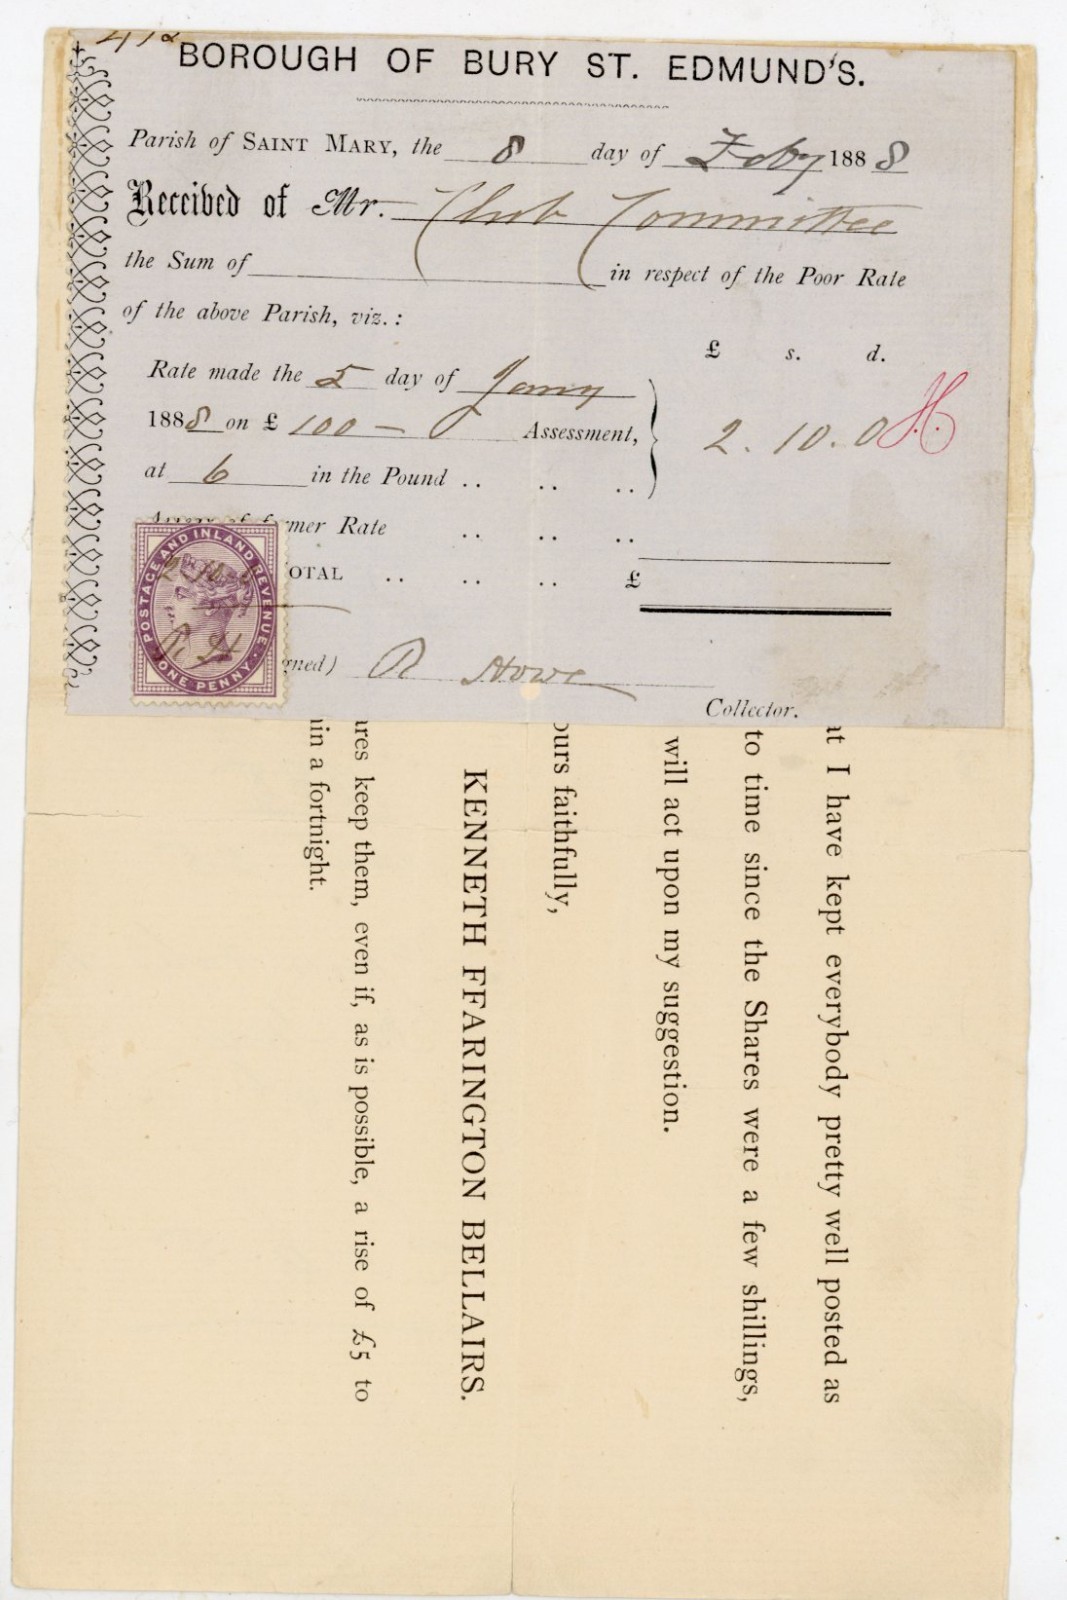 412
BOROUGH OF BURY ST. EDMUND'S.
Parish of SAINT MARY, the 8 day of Feby 1888
Received of Mr. Club Committee
the Sum of in respect of the Poor Rate
of the above Parish, viz.:
£ s. d.
Rate made the 5 day of Jany
1888 on £ 100 - Assessment,
2. 10. 0 H.
at 6 in the Pound .. .. ..
Arrears of former Rate .. .. ..
OTAL .. .. .. £
gned) R Howe
Collector.
POSTAGE AND INLAND REVENUE
ONE PENNY
2.10.
R H
at I have kept everybody pretty well posted as
to time since the Shares were a few shillings,
will act upon my suggestion.
ours faithfully,
KENNETH FFARINGTON BELLAIRS.
ares keep them, even if, as is possible, a rise of £5 to
in a fortnight.